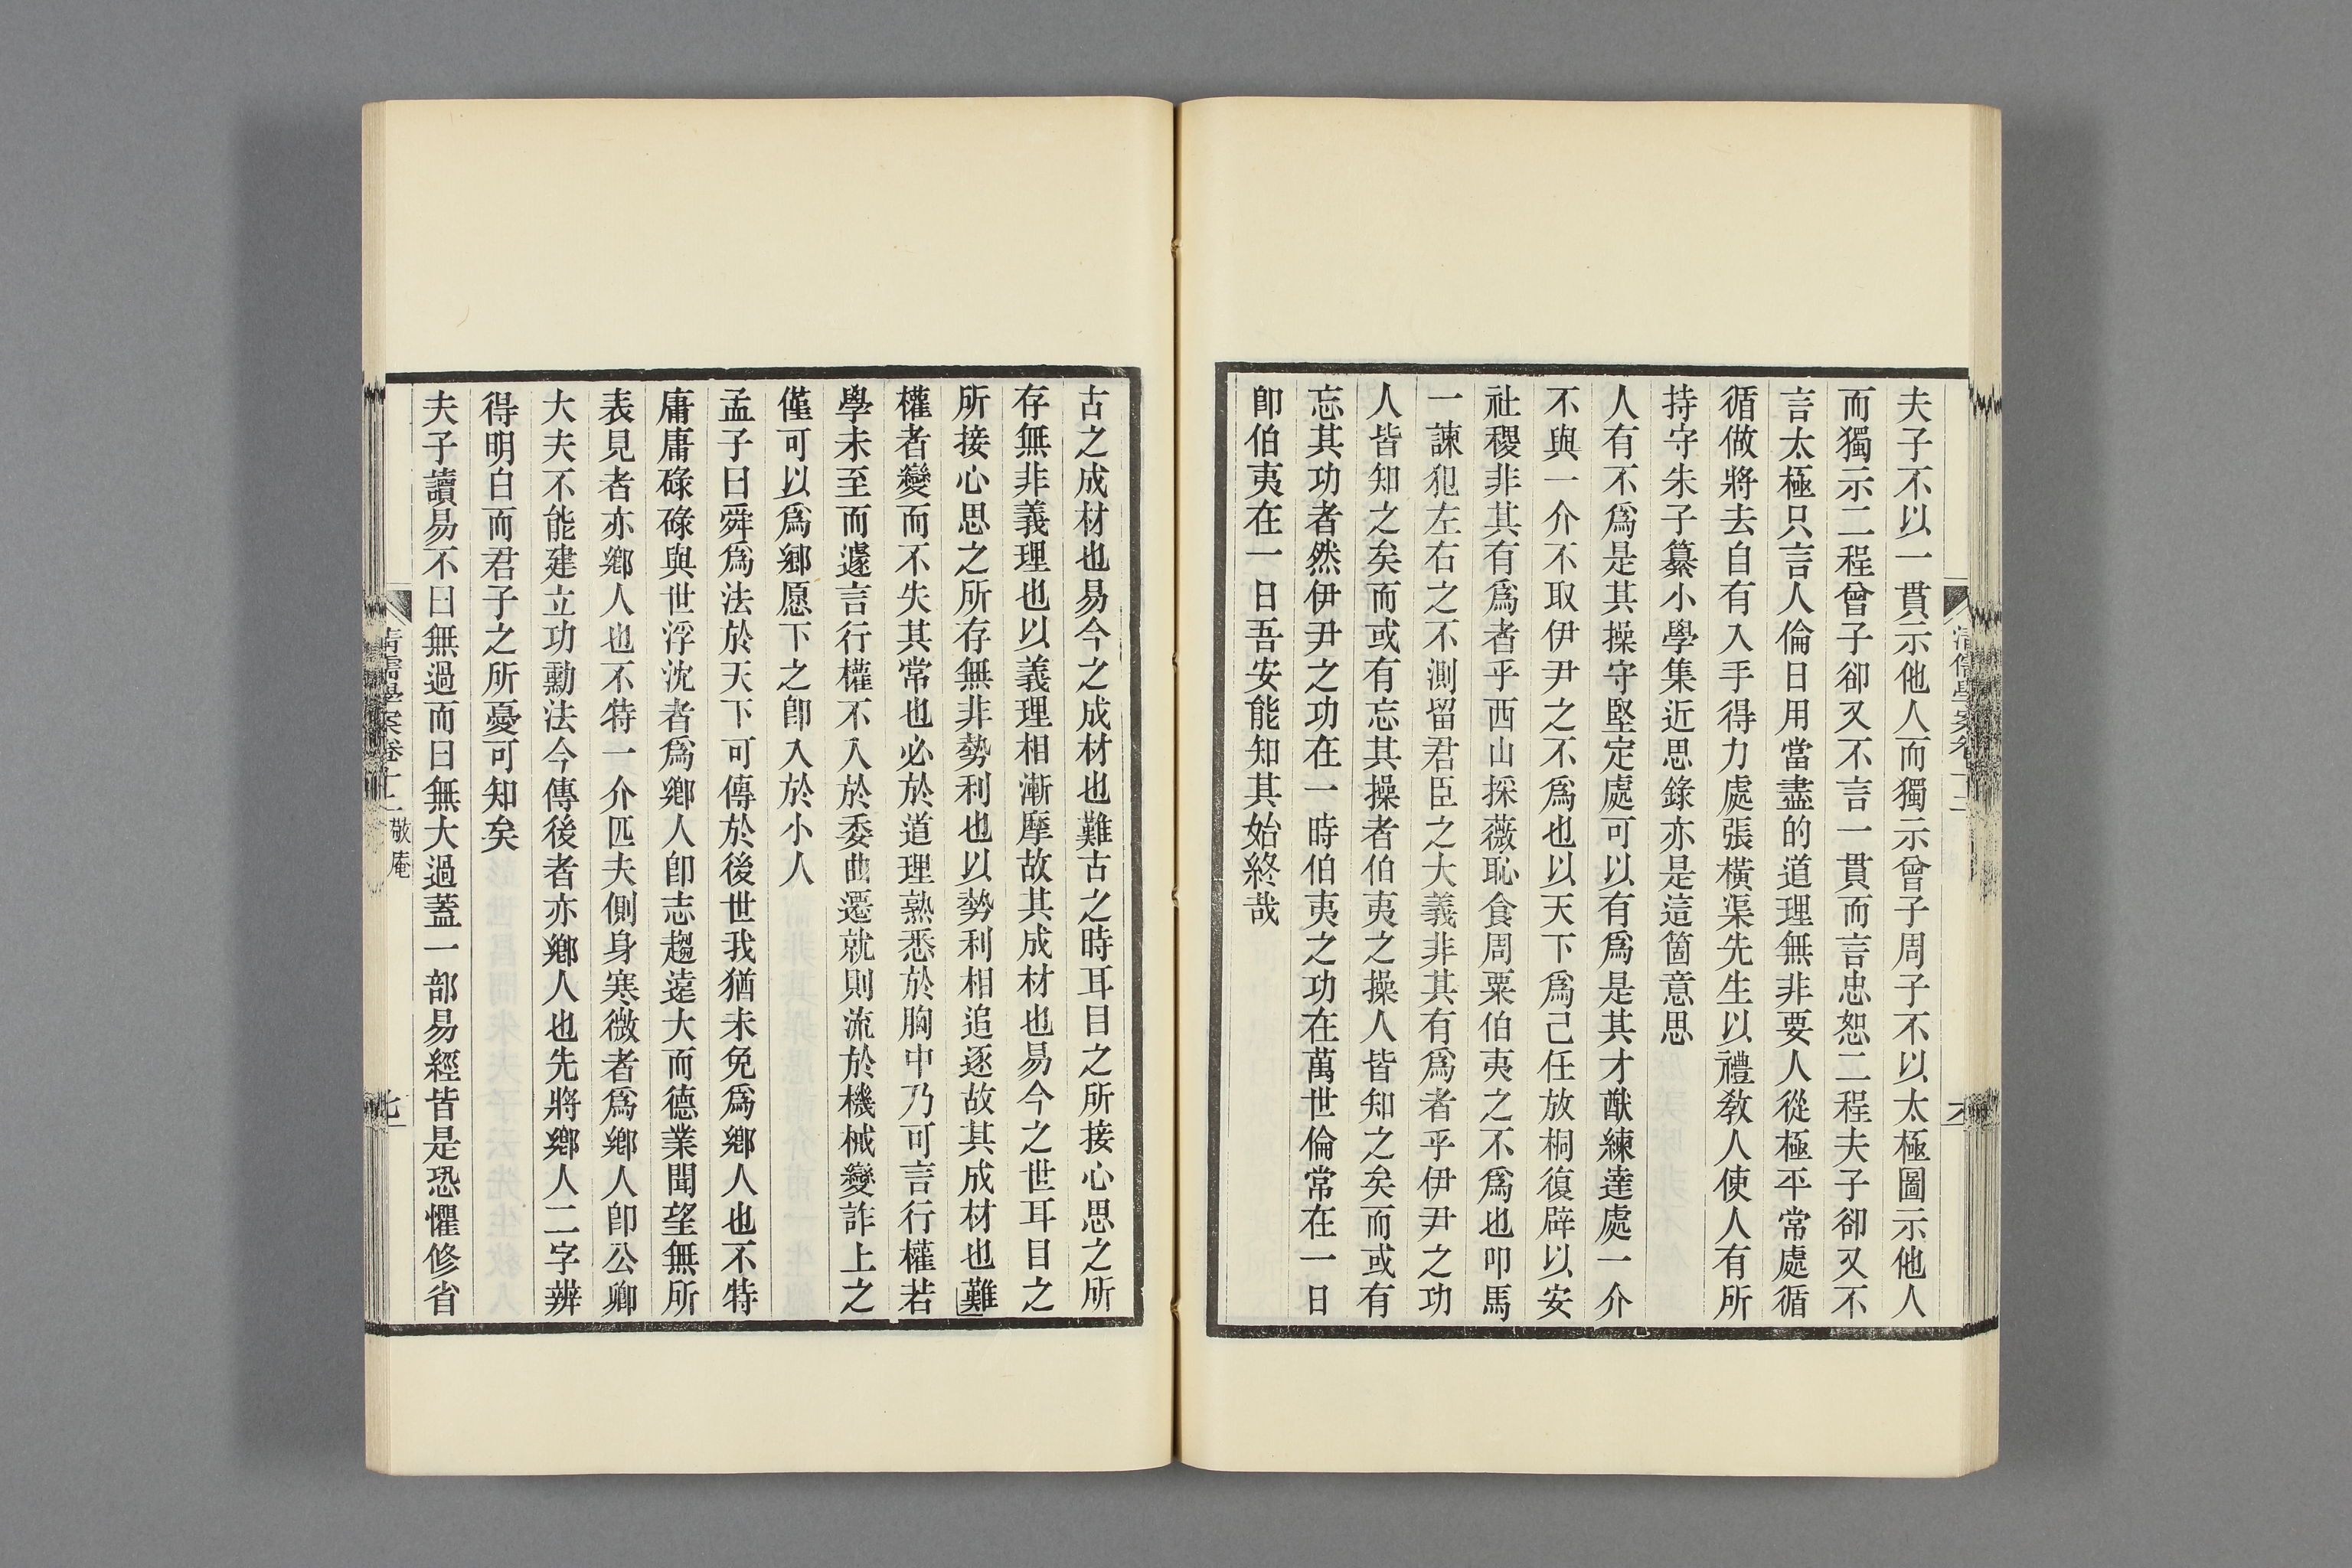 夫子不以一貫示他人而獨示曾子周子不以太極圖示他人
而獨示二程曾子卻又不言一貫而言忠恕二程夫子卻又不
言太極只言人倫日用當盡的道理無非要人從極平常處循
循做將去自有入手得力處張橫渠先生以禮敎人使人有所
持守朱子纂小學集近思錄亦是這箇意思
人有不爲是其操守堅定處可以有爲是其才猷練達處一介
不與一介不取伊尹之不爲也以天下爲己任放桐復辟以安
社稷非其有爲者乎西山採薇恥食周粟伯夷之不爲也叩馬
一諫犯左右之不測留君臣之大義非其有爲者乎伊尹之功
人皆知之矣而或有忘其操者伯夷之操人皆知之矣而或有
忘其功者然伊尹之功在一時伯夷之功在萬世倫常在一日
卽伯夷在一日吾安能知其始終哉
清儒學案卷十二
六
古之成材也易今之成材也難古之時耳目之所接心思之所
存無非義理也以義理相漸摩故其成材也易今之世耳目之
所接心思之所存無非勢利也以勢利相追逐故其成材也難
權者變而不失其常也必於道理熟悉於胸中乃可言行權若
學未至而遽言行權不入於委曲遷就則流於機械變詐上之
僅可以爲鄕愿下之卽入於小人
孟子曰舜爲法於天下可傳於後世我猶未免爲鄕人也不特
庸庸碌碌與世浮沈者爲鄕人卽志趨遠大而德業聞望無所
表見者亦鄕人也不特一介匹夫側身寒微者爲鄕人卽公卿
大夫不能建立功勳法今傳後者亦鄕人也先將鄕人二字辨
得明白而君子之所憂可知矣
夫子讀易不曰無過而曰無大過蓋一部易經皆是恐懼修省
清儒學案卷十二 敬庵
七